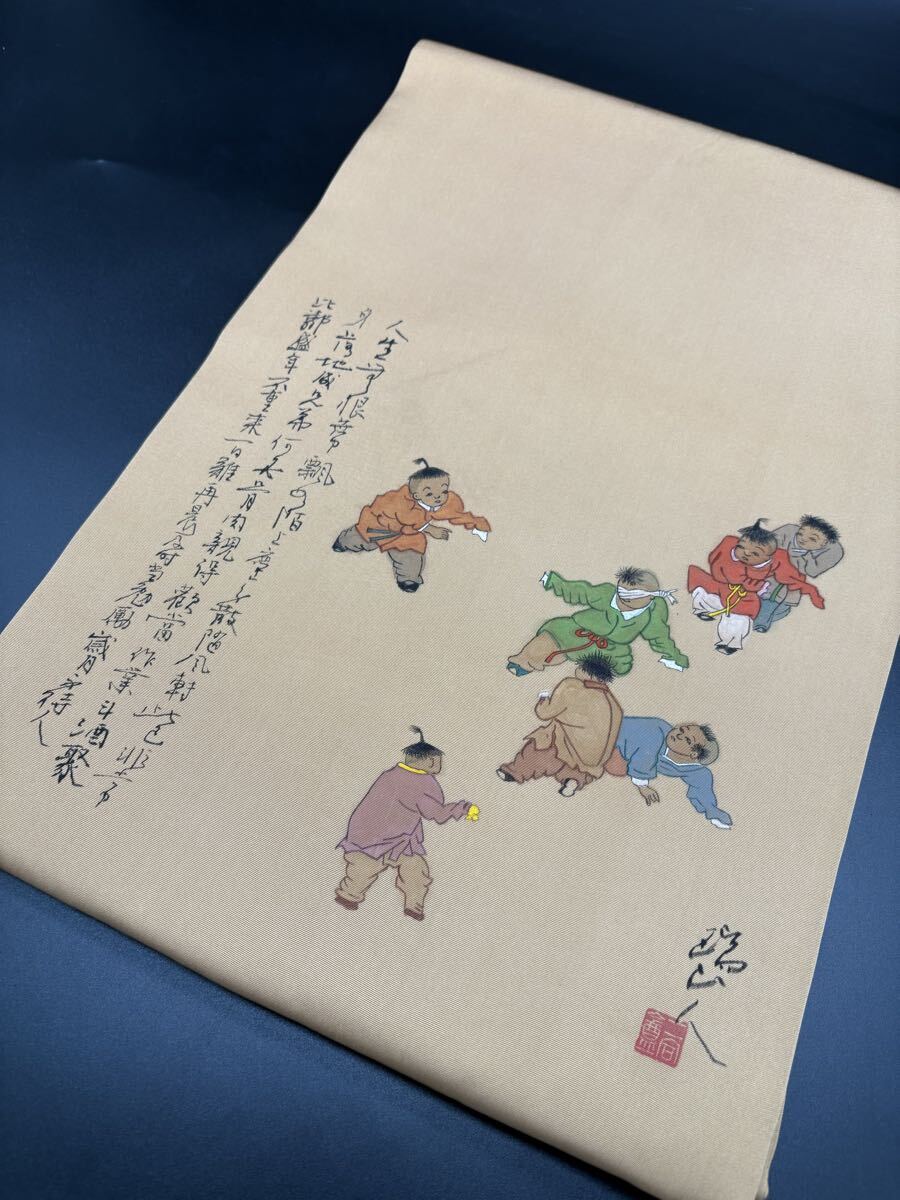 人生無根蔕飄如陌上塵分散随風轉此已非常
身落地成兄弟何必骨肉親得歡當作楽斗酒聚
比鄰盛年不重来一日難再晨及時當勉勵歳月不待人
瑞山人